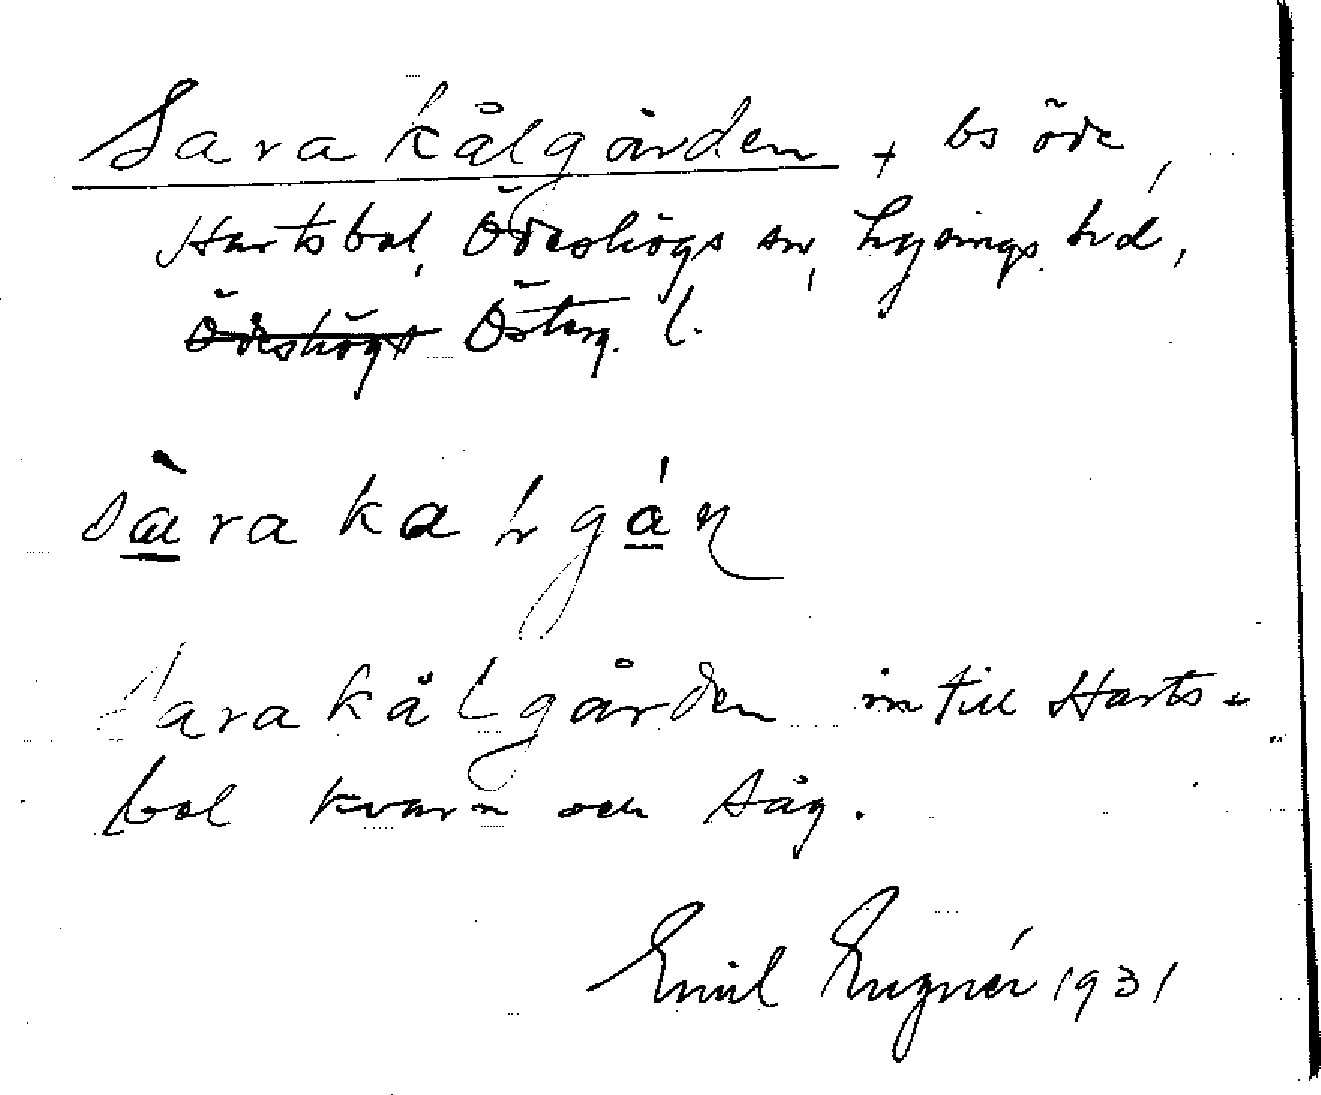 Sara kålgården + bs öde,
Hartsbol, Ödeshögs sn, Lysings hd,
Ödeshögs Österg. l.
sàrakaLgán
Sara kålgården intill Harts-
bol kvarn och såg.
Emil Engnér 1931